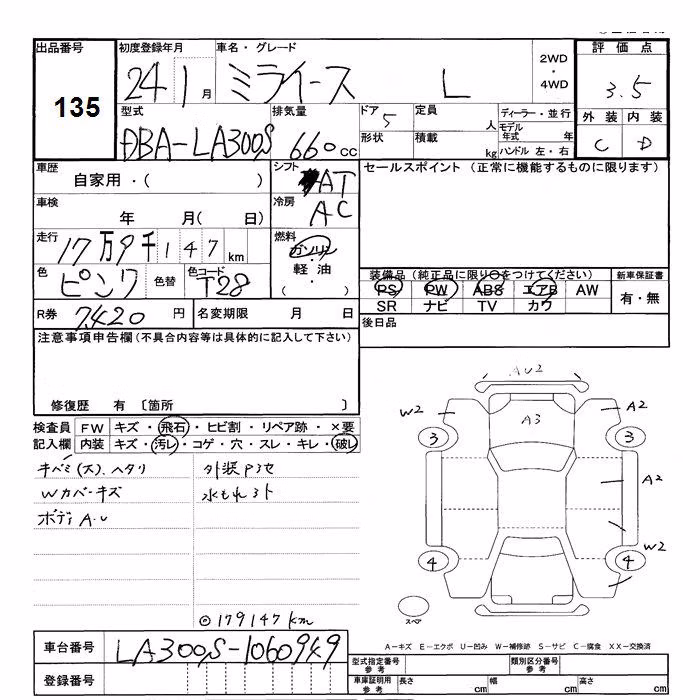 出品番号 初度登録年月 車名・グレード 2WD・4WD 評価点
135 24 1月 ミライース L 3.5
型式 排気量 ドア 5 定員 人 ディーラー・並行 外装 内装
DBA-LA300S 660cc 形状 積載 kg モデル年式 年 ハンドル 左・右 C D
車歴 自家用・( ) シフト AT セールスポイント (正常に機能するものに限ります)
車検 年 月( 日) 冷房 AC
走行 17万9千147km 燃料 ガソリン・軽油・( )
色 ピンク 色替 色コード T28
装備品 (純正品に限り○をつけてください) 新車保証書
PS PW ABS エアB AW 有・無
SR ナビ TV カワ
R券 7,420円 名変期限 月 日 後日品
注意事項申告欄(不具合内容等は具体的に記入して下さい)
修復歴 有 〔箇所 〕
検査員 FW キズ・飛石・ヒビ割・リペア跡・×要
記入欄 内装 キズ・汚レ・コゲ・穴・スレ・キレ・破レ
外装
Wカバーキズ
ボディA.U
◎179147km
AU2
W2 A3 A2
3 3
A2
W2
4 4
スペア
A-キズ E-エクボ U-凹み W-補修跡 S-サビ C-腐食 XX-交換済
車台番号 LA300S-1060949
登録番号
型式指定番号 参考 類別区分番号 参考
車庫証明用 参考 長さ cm 幅 cm 高さ cm